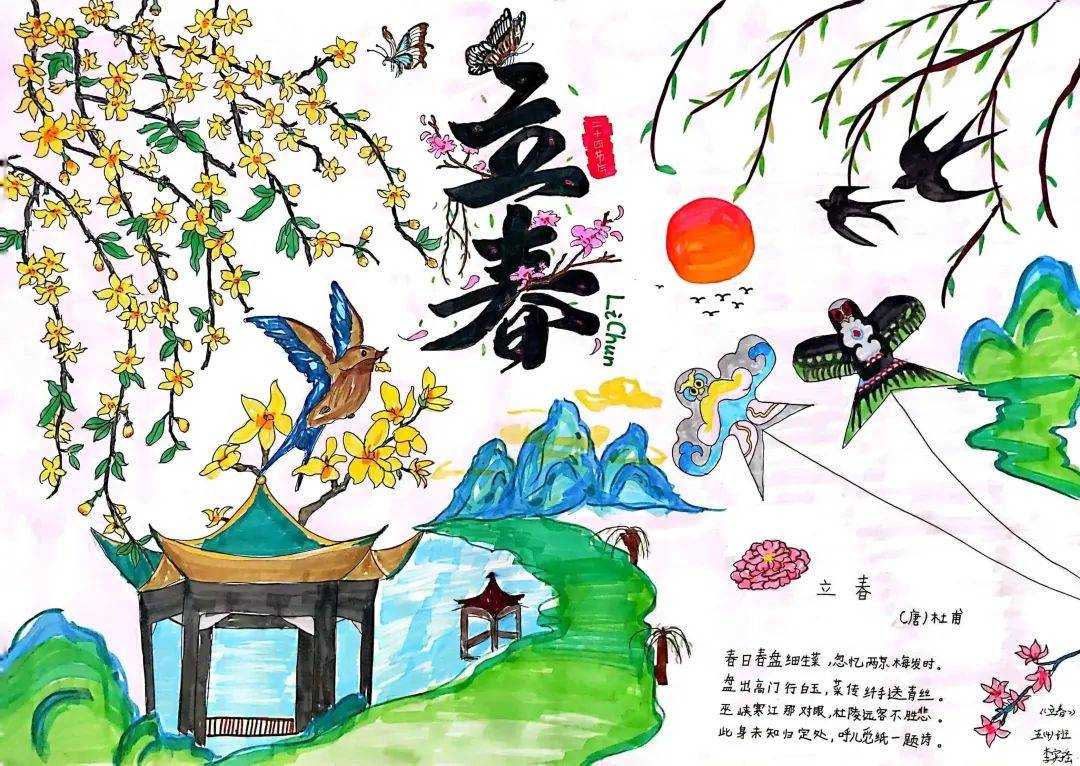 立春
二十四节气
LiChun
立春
(唐)杜甫
春日春盘细生菜,忽忆两京梅发时。
盘出高门行白玉,菜传纤手送青丝。
巫峡寒江那对眼,杜陵远客不胜悲。
此身未知归定处,呼儿觅纸一题诗。
《立春》